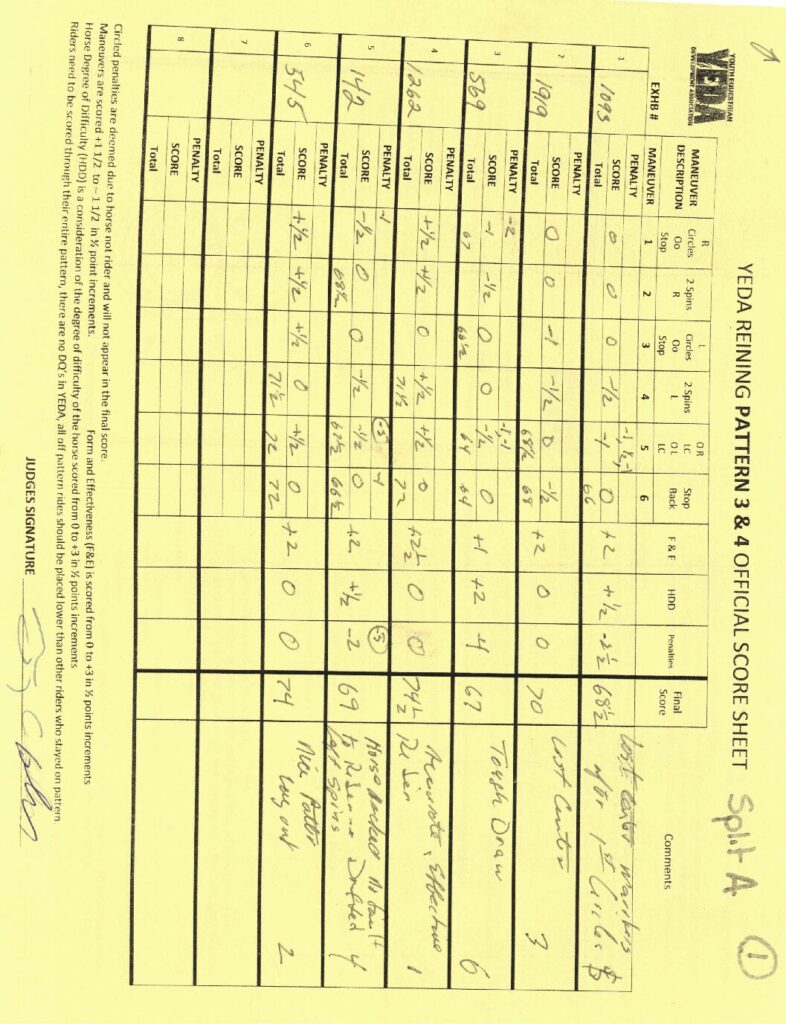 YOUTH EQUESTRIAN
YEDA
DEVELOPMENT ASSOCIATION
YEDA REINING PATTERN 3 & 4 OFFICIAL SCORE SHEET Split A 1
MANEUVER DESCRIPTION R Circles Oo Stop 2 Spins R L Circles Oo Stop 2 Spins L O R LC O L LC Stop Back F & F HDD Penalties Final Score Comments
EXHB # MANEUVER 1 2 3 4 5 6
1 1093 PENALTY -1, ½, -1
SCORE 0 0 0 -½ -1 0 +2 +½ -2½ 68½
Total 66
Lost
after 1st Circles 5
2 1919 PENALTY
SCORE 0 0 -1 -½ 0 -½ +2 0 0 70 Lost Center 3
Total 68½ 68
3 569 PENALTY -2 -1, -1
SCORE -1 -½ 0 0 -½ 0 +1 +2 -4 67 Tough Draw 6
Total 67 66½ 64 64
4 1262 PENALTY
SCORE +½ +½ 0 +½ +½ 0 +2½ 0 0 74½ Accurate, Effective
Total 71½ 72 Rider 1
5 142 PENALTY -1 -5 -1 -5
SCORE -½ 0 0 -½ -½ 0 +2 +½ -2 69 Horse Backed No fault
Total 68½ 66½ to Rider - Drifted
Left Spins 4
6 545 PENALTY
SCORE +½ +½ +½ 0 +½ 0 +2 0 0 74 Nice Pattern
Total 71½ 72 72 Lay out 2
7 PENALTY
SCORE
Total
8 PENALTY
SCORE
Total
Circled penalties are deemed due to horse not rider and will not appear in the final score.
Maneuvers are scored +1 1/2 to – 1 1/2 in ½ point increments. Form and Effectiveness (F&E) is scored from 0 to +3 in ½ points increments
Horse Degree of Difficulty (HDD) is a consideration of the degree of difficulty of the horse scored from 0 to +3 in ½ points increments
Riders need to be scored through their entire pattern, there are no DQ's in YEDA, all off pattern rides should be placed lower than other riders who stayed on pattern
JUDGES SIGNATURE